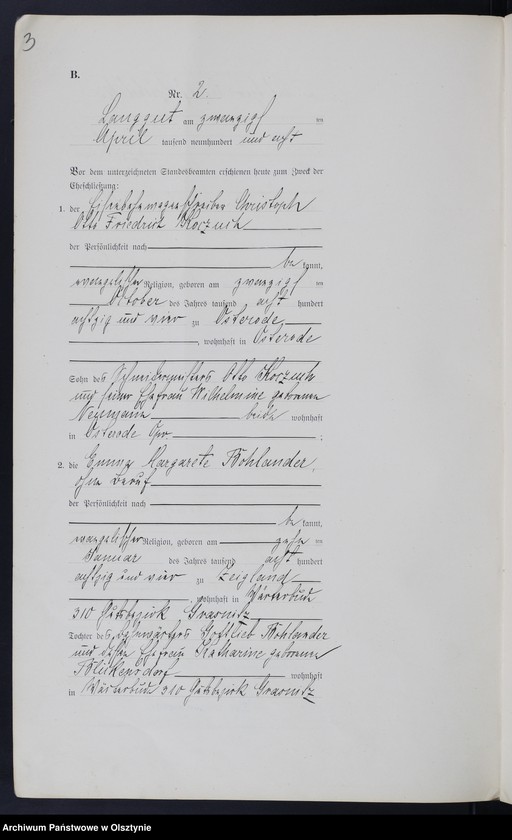 3
B.
Nr. 2.
Langgut am zwanzigsten
April tausend neunhundert und acht
Vor dem unterzeichneten Standesbeamten erschienen heute zum Zweck der
Eheschließung:
1. der Christoph
Otto Friedrich
der Persönlichkeit nach
be kannt,
evangelischer Religion, geboren am zwanzigsten
Oktober des Jahres tausend acht hundert
achtzig und vier zu Osterode
, wohnhaft in Osterode
Sohn des Otto
und seiner Ehefrau Wilhelmine geborenen
Neumann beide wohnhaft
in Osterode Opr ;
2. die Emma Margarete Bohlander,
ohne Beruf
der Persönlichkeit nach
be kannt,
evangelischer Religion, geboren am
Januar des Jahres tausend acht hundert
achtzig und vier zu
, wohnhaft in Wärterbude
310 Gutsbezirk
Tochter des Bahnwärters Gottlieb Bohlander
und dessen Ehefrau Katharine geborenen
wohnhaft
in Wärterbude 310 Gutsbezirk
Archiwum Państwowe w Olsztynie